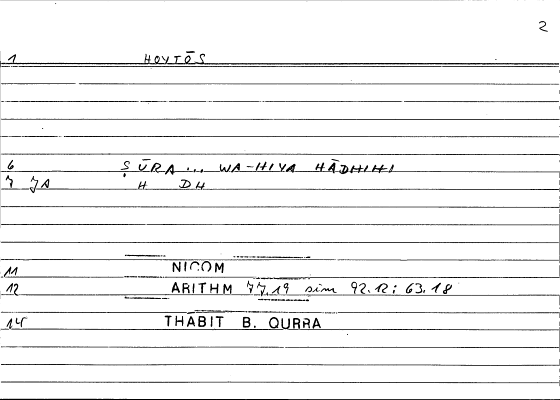 2
1 HOYTŌS
6 ṢŪRA ... WA-HIYA HĀDHIHI
7 JA H DH
11 NICOM
12 ARITHM 77.19 sim 92.12; 63.18
14 THABIT B. QURRA